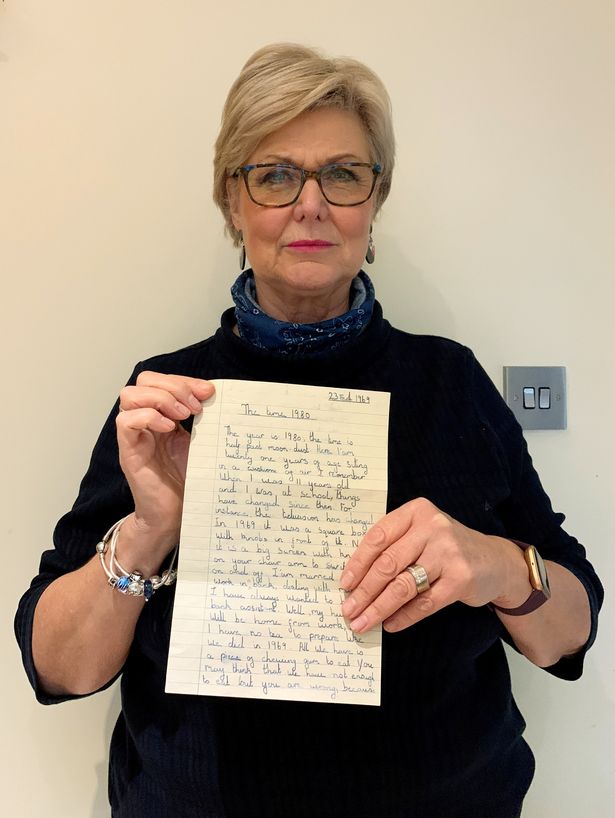 23rd 1969
The time 1980
The year is 1980. the time is
half past moon dust Here I'am
twenty one years of age siting
in a cushione of air I remember
When I was 11 years old
and I was at school, things
have changed since then. For
instance the television has changed
In 1969 it was a square box
with knobs in front of it. N
it is a big screen with
on your chair arm to
on and off. I am married
work in bank, dealing with
I have always wanted to
bank assistant. Well my hu
Will be home from work,
I have no tea to prepare like
we did in 1969. All we have is
a piece of chewing gum to eat You
may think that we have not enough
to eat but you are wrong, because